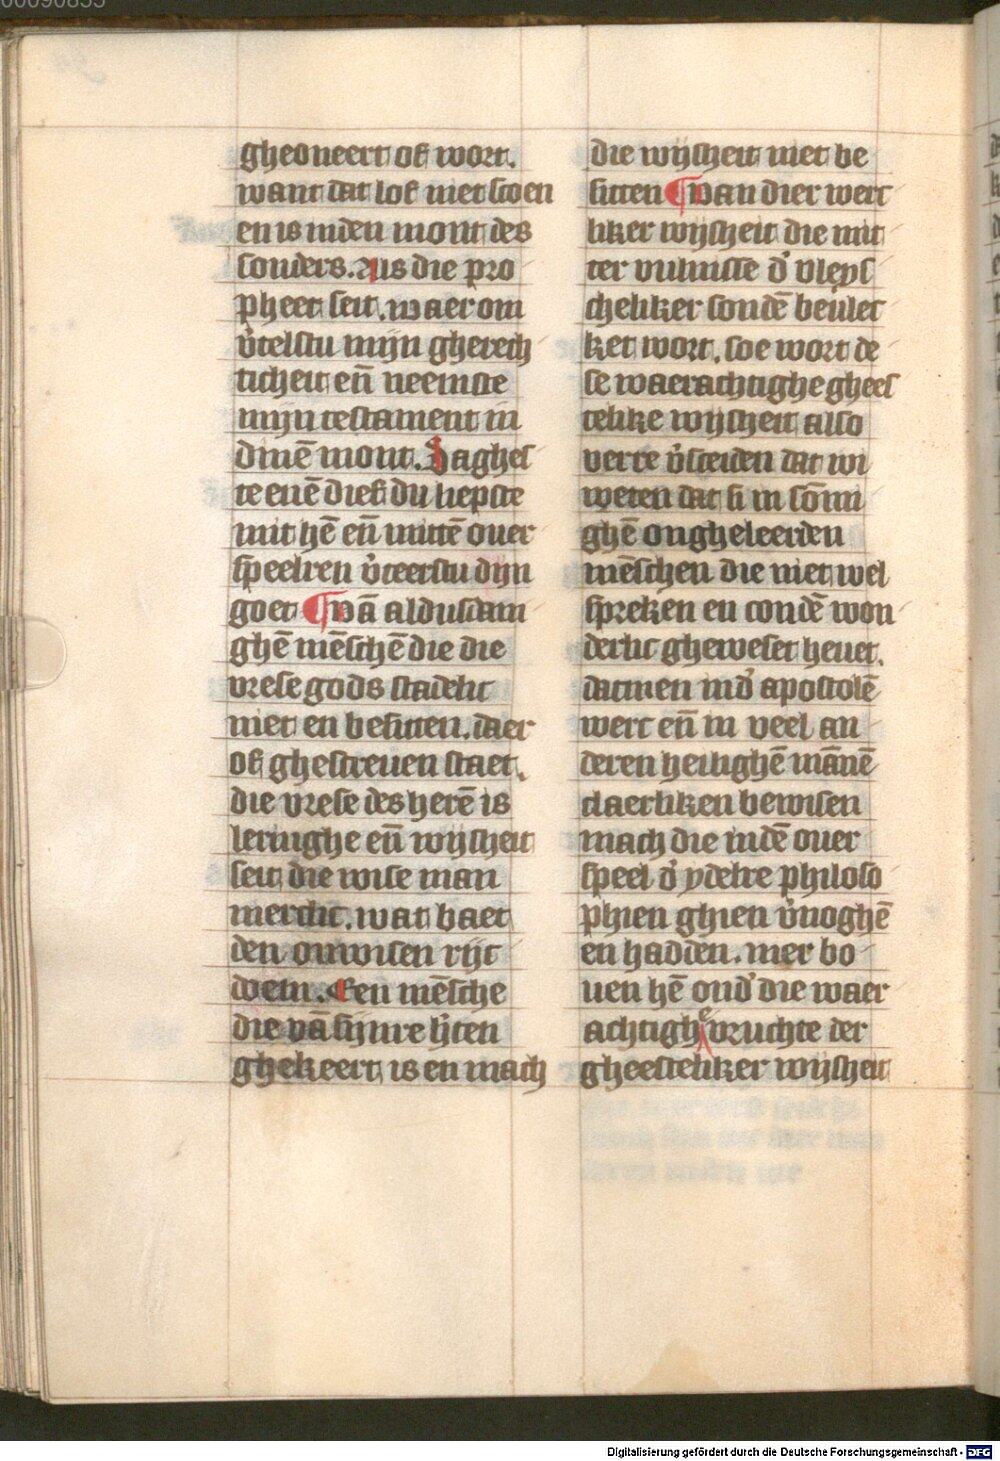 00090855
gheoneert of wort.
want dat lof niet scoen
en is inden mont des
sonders. Aus die pro
pheet seit. waer om
v̓telstu mijn gherech
ticheit en̄ neemste
mijn testament in
dinē mont. Saghes
te enē dief du liepste
mit hē en̄ mittē ouer
speelren v̓teerstu dijn
goet ¶ Vā aldusdani
ghē mēschē die die
vrese gods stadelic
niet en besitten. daer
of ghescreuen staet.
die vrese des herē is
leringhe en̄ wijsheit
seit die wise man
merclic. wat baet
den onwisen rijc
doem. Een mēsche
die vā sijnre lijten
ghekeert is en mach
die wijsheit niet be
sitten ¶ Van dier wert
liker wijsheit die mit
ter vulnisse d̓ vleys
cheliker sondē beulec
ket wort. soe wort de
se waerachtighe ghees
telike wijsheit also
verre v̓sceiden dat wi
weten dat si in sōmi
ghē ongheleerden
mēschen die niet wel
spreken en condē won
derlic gheweset heuet.
datmen ind̓ apostolē
werc en̄ in veel an
deren heilighē mānē
claerliken bewisen
mach die indē ouer
speel d̓ ydelre philoso
phien ghien v̓noghē
en hadden. mer bo
uen hē ond̓ die waer
achtighe vruchte der
gheesteliker wijsheit
Digitalisierung gefördert durch die Deutsche Forschungsgemeinschaft - DFG